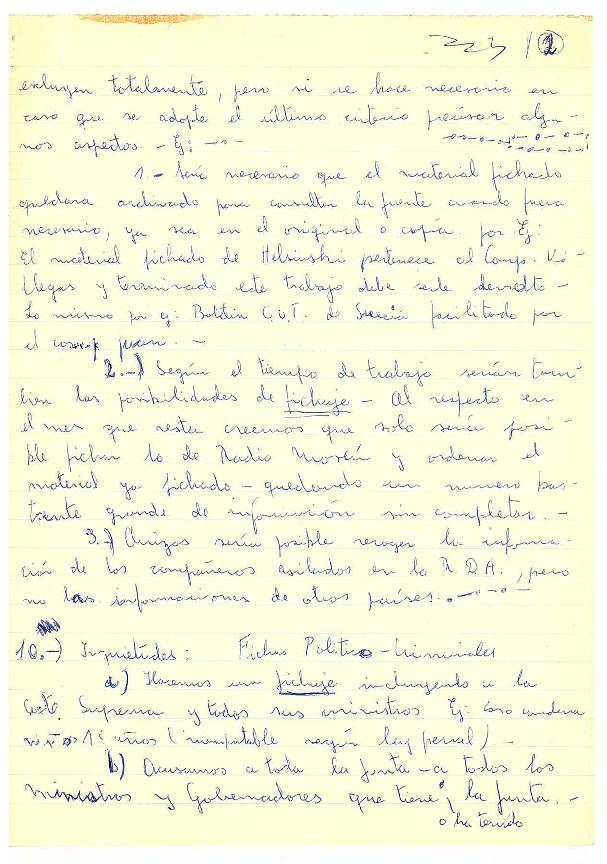 223 / 2
excluyen totalmente, pero si se hace necesario en
caso que se adopte el último criterio precisar algu-
nos aspectos. - Ej:
1.- Sería necesario que el material fichado
quedara archivado para consultar la fuente cuando fuera
necesario, ya sea en el original o copia. por Ej:
El material fichado de Helsinski pertenece al Comp. Vi-
llegas y terminado este trabajo debe serle devuelto -
Lo mismo por ej: Boletín C.U.T. de Suecia facilitado por
el comp. Juan. -
2.-) Según el tiempo de trabajo serían tam-
bien las posibilidades de fichaje - Al respecto en
el mes que resta creemos que solo sería posi-
ble fichar lo de Radio Moscú y ordenar el
material ya fichado - quedando un numero bas-
tante grande de información sin completar. -
3.-) Quizas sería posible recoger la informa-
ción de los compañeros asilados en la R.D.A., pero
no las informaciones de otros países.
10.-) Inquietudes: Fichas Politico-Criminales
a) Hacemos un fichaje incluyendo a la
Corte Suprema y todos sus ministros Ej: Caso condena
niños 15 años (inimputable según ley penal). -
b) Acusamos a toda la Junta - a todos los
ministros y Gobernadores que tiene, la Junta. -
o ha tenido